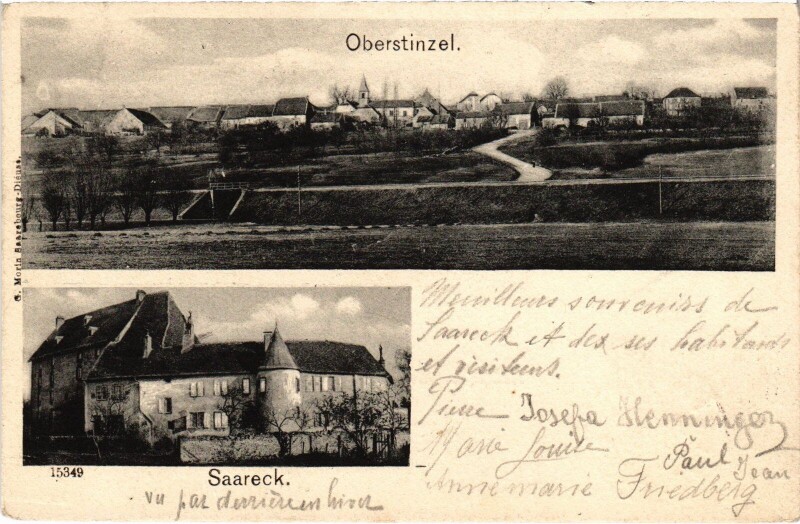 Oberstinzel.
G. Morin Saarebourg-Dieuze.
Meuilleurs souvenirs de
Saareck et des ses habitants
et visiteurs.
Pierre Josefa Henninger
Marie Louise
Paul Jean
Annemarie Friedberg
15349
Saareck.
vu par derrière en hiver